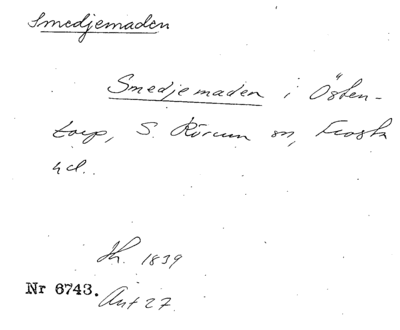 Smedjemaden
Smedjemaden i Östen-
torp, S. Rörum sn, Frosta
hd.
Jh. 1839
Nr 6743. Akt 27